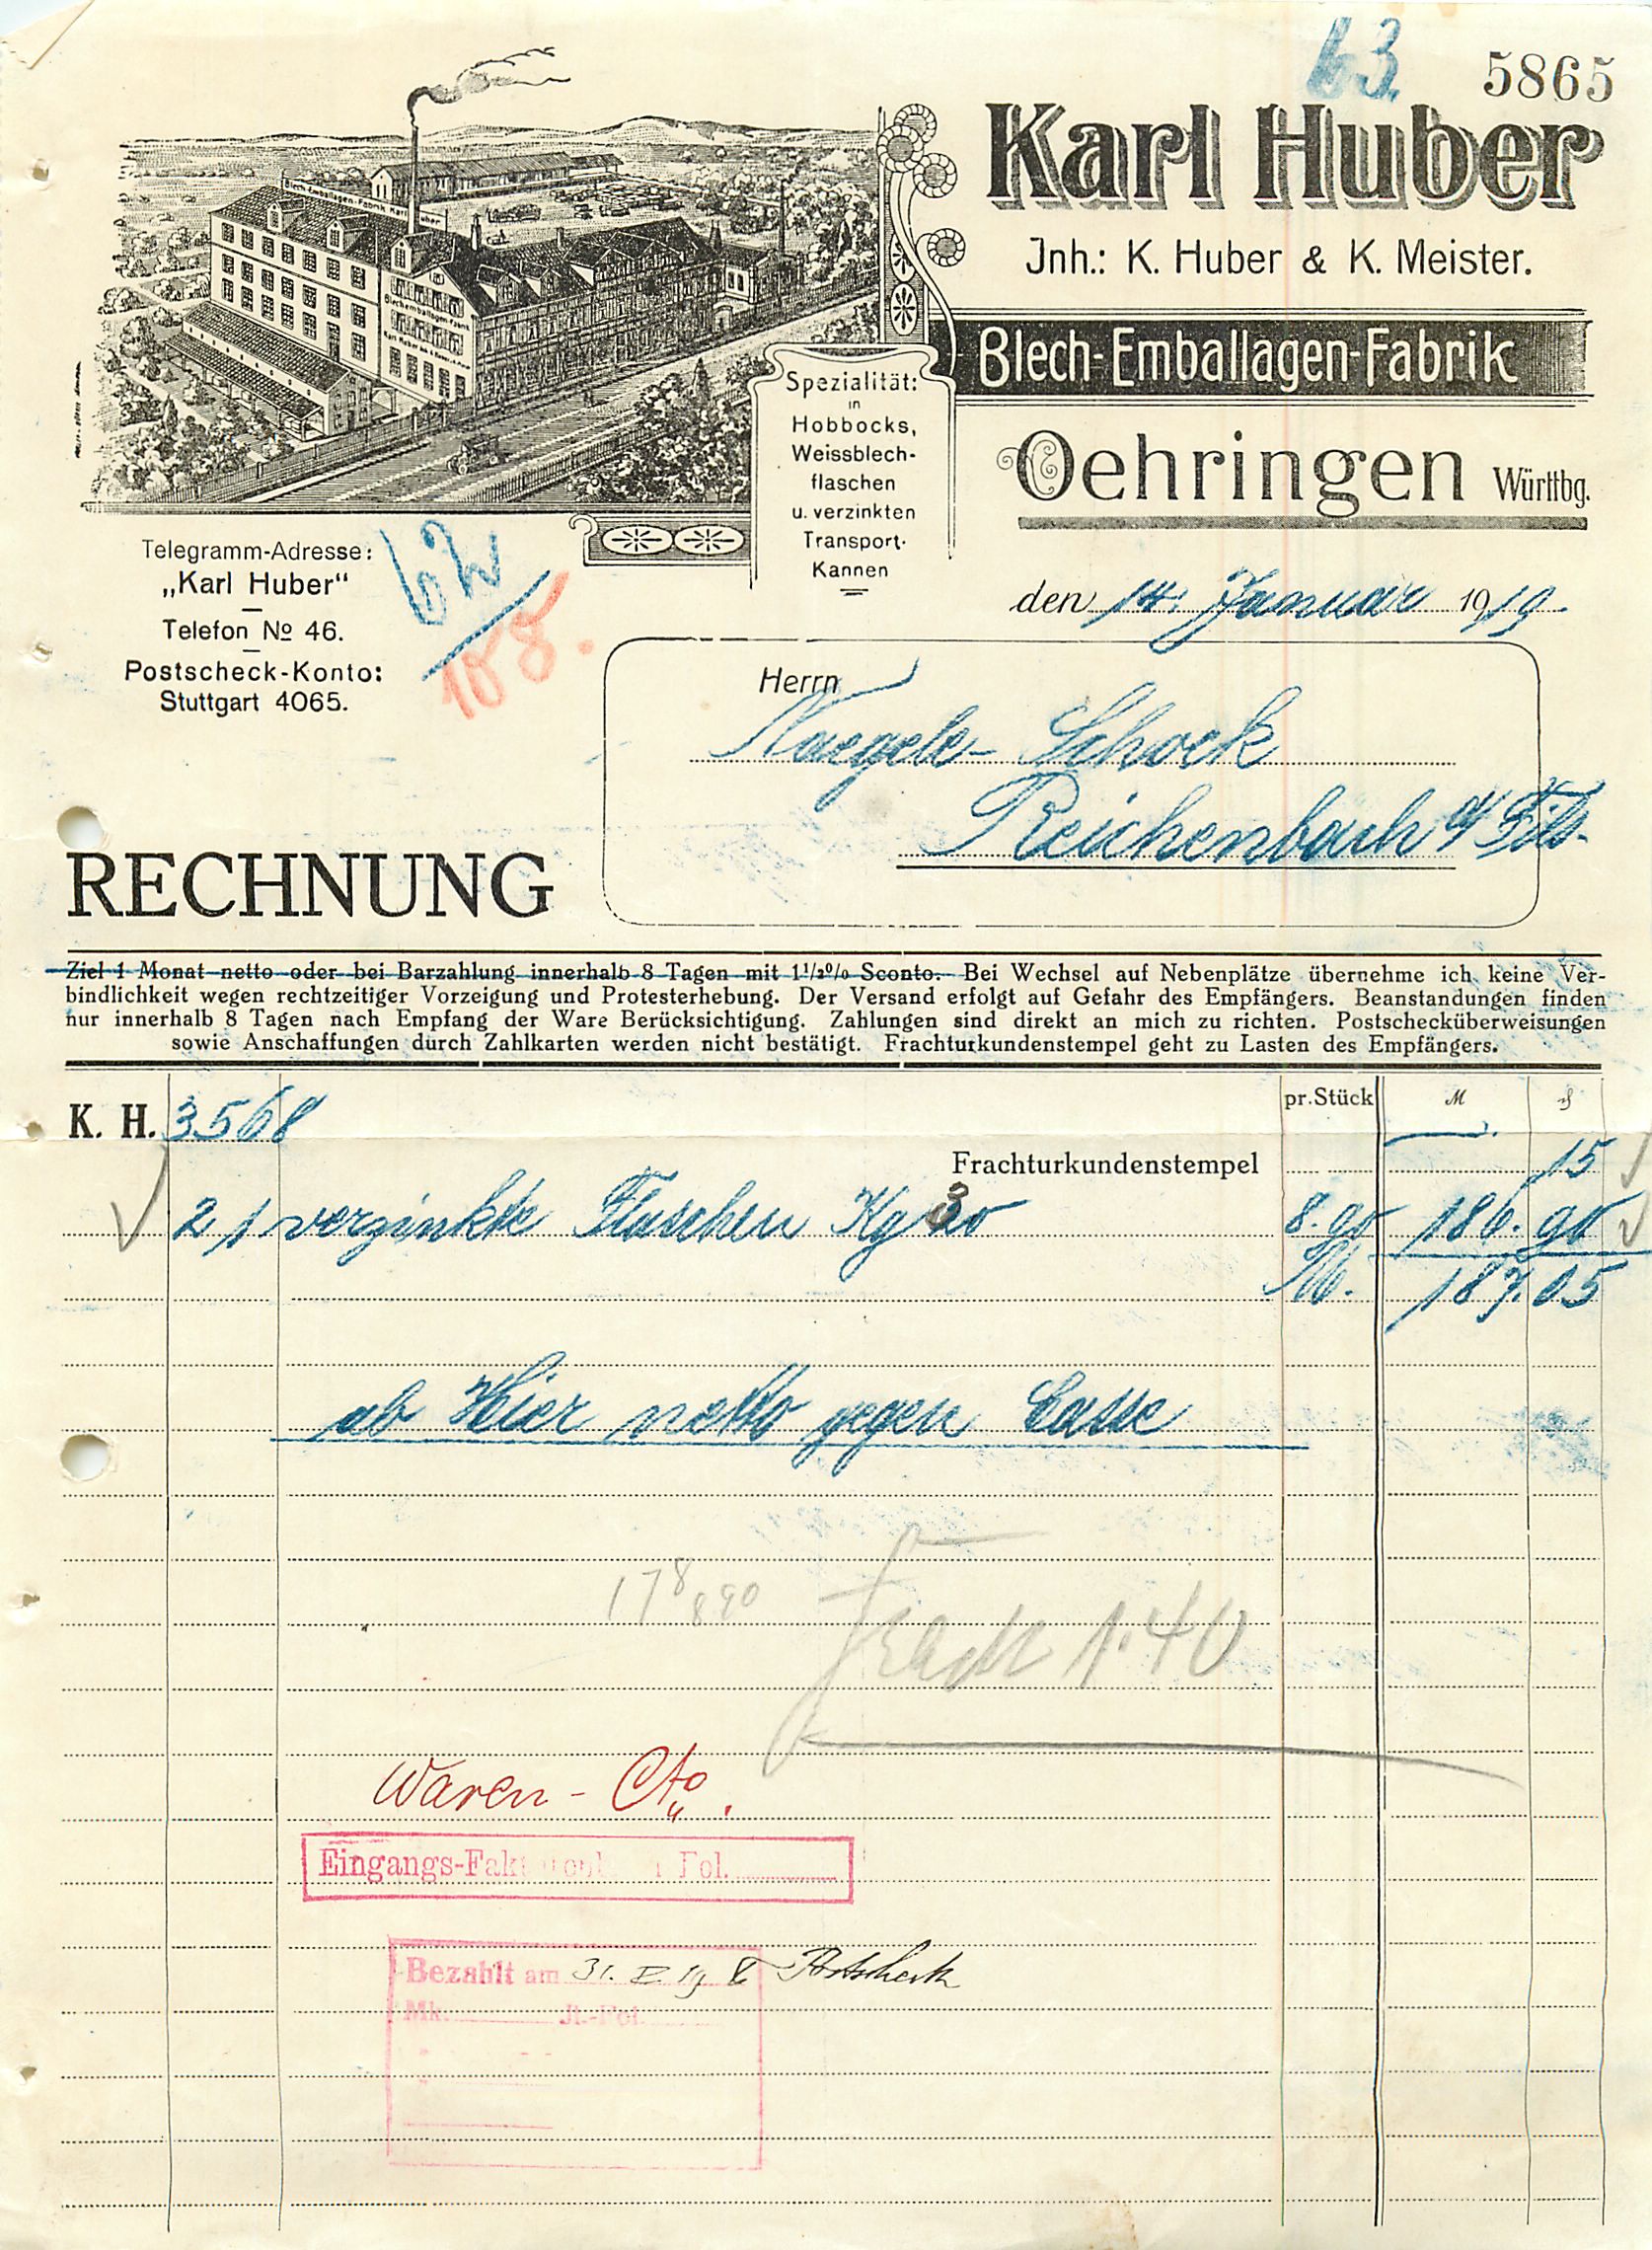 63.
5865
Karl Huber
Jnh.: K. Huber & K. Meister.
Blech-Emballagen-Fabrik
Oehringen Württbg.
Blech-Emballagen-Fabrik Karl Huber
Blechemballagen-Fabrik
Spezialität:
in
Hobbocks,
Weissblech-
flaschen
u. verzinkten
Transport-
Kannen
Telegramm-Adresse:
„Karl Huber“
Telefon No 46.
Postscheck-Konto:
Stuttgart 4065.
62
108.
den 14. Januar 1919.
Herrn
Naegele-Schock
Reichenbach a/ Fils.
RECHNUNG
Ziel 1 Monat netto oder bei Barzahlung innerhalb 8 Tagen mit 1½% Sconto. Bei Wechsel auf Nebenplätze übernehme ich keine Ver-
bindlichkeit wegen rechtzeitiger Vorzeigung und Protesterhebung. Der Versand erfolgt auf Gefahr des Empfängers. Beanstandungen finden
nur innerhalb 8 Tagen nach Empfang der Ware Berücksichtigung. Zahlungen sind direkt an mich zu richten. Postschecküberweisungen
sowie Anschaffungen durch Zahlkarten werden nicht bestätigt. Frachturkundenstempel geht zu Lasten des Empfängers.
pr. Stück M ₰
K. H. 3568
Frachturkundenstempel 15
21 verzinkte Flaschen Kg 30 8.90 186.90
M. 187.05
ab Hier netto gegen Casse
178 890
Fracht 1.40
Waren-Cto.
Eingangs-Fakt Fol.
Bezahlt am 31. I. 19 Postscheck
Mk. Jl.-Fol.